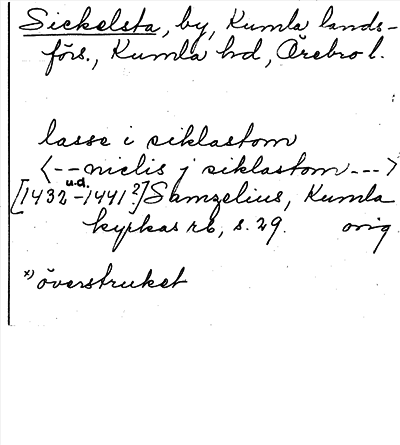 Sickelsta, by, Kumla lands-
förs., Kumla hd, Örebro l.
lasse i siklastom
<--nielis j siklastom--->
u.d.
[1432-1441?] Samzelius, Kumla
kyrkas rb, s. 29. orig
*) överstruket